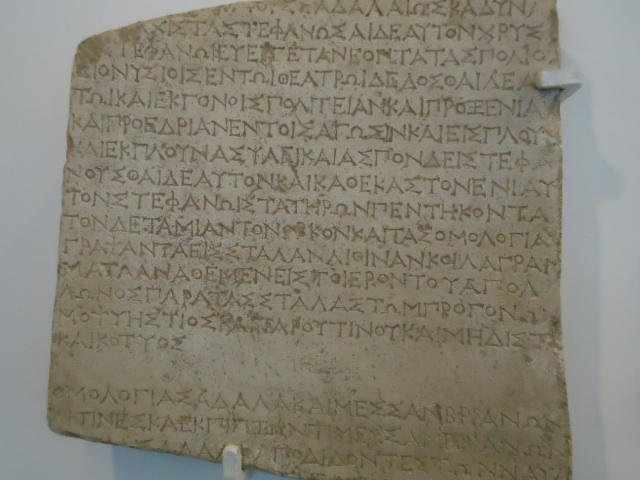 ΣΑΔΑΛΑΙΩΣΚΑΔΥΝ
ΑΧΙΣΤΑΣΤΕΦΑΝΩΣΑΙΔΕΑΥΤΟΝΧΡΥΣ
ΤΕΦΑΝΩΙΕΥΕΡΓΕΤΑΝΕΟΝΤΑΤΑΣΠΟΛΙΟ
ΔΙΟΝΥΣΙΟΙΣΕΝΤΩΙΘΕΑΤΡΩΙΔΕΔΟΣΘΑΙΔΕΑ
ΤΩΙΚΑΙΕΚΓΟΝΟΙΣΠΟΛΙΤΕΙΑΝΚΑΙΠΡΟΞΕΝΙΑ
ΚΑΙΠΡΟΕΔΡΙΑΝΕΝΤΟΙΣΑΓΩΣΙΝΚΑΙΕΙΣΠΛΟΥ
ΚΑΙΕΚΠΛΟΥΝΑΣΥΛΕΙΚΑΙΑΣΠΟΝΔΕΙΣΤΕΦΑ
ΝΟΥΣΘΑΙΔΕΑΥΤΟΝΚΑΙΚΑΘΕΚΑΣΤΟΝΕΝΙΑΥ
ΤΟΝΣΤΕΦΑΝΩΙΣΤΑΤΗΡΩΝΠΕΝΤΗΚΟΝΤΑ
ΤΟΝΔΕΤΑΜΙΑΝΤΟΝΟΡΚΟΝΚΑΙΤΑΣΟΜΟΛΟΓΙΑ
ΓΡΑΨΑΝΤΑΕΙΣΣΤΑΛΑΝΛΙΘΙΝΑΝΚΟΙΛΑΓΡΑΜ
ΜΑΤΑΑΝΑΘΕΜΕΝΕΙΣΤΟΙΕΡΟΝΤΟΥΑΠΟΛ
ΛΩΝΟΣΠΑΡΑΤΑΣΣΤΑΛΑΣΤΩΜΠΡΟΓΟΝΩ
ΜΟΨΥΗΣΤΙΟΣΚΑΙΤΑΡΟΥΤΙΝΟΥΚΑΙΜΗΔΙΣΤ
ΚΑΙΚΟΤΥΟΣ
ΟΜΟΛΟΓΙΑΣΑΔΑΛΑΚΑΙΜΕΣΣΑΜΒΡΙΑΝΩΝ
ΤΙΝΕΣΚΑΕΚΠΙΠΤΩΝΤΙΜΕΣΣΑΜΒΡΙΑΝΩΝ
ΣΑΔΑΛΑΑΠΟΔΙΔΟΝΤΕΣΤΩΝΝΑΥ